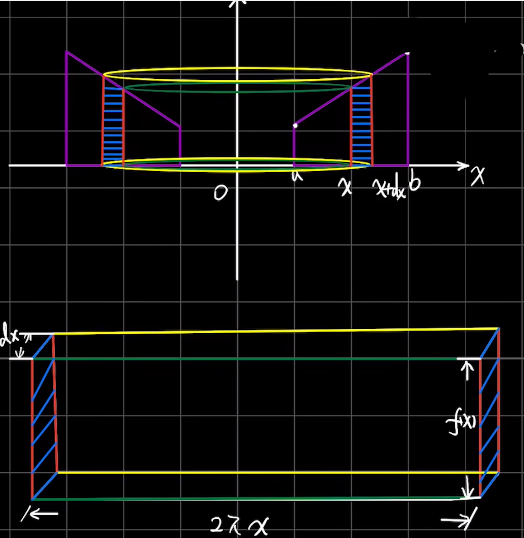 0 a x x+dx b x
dx
f(x)
2πx